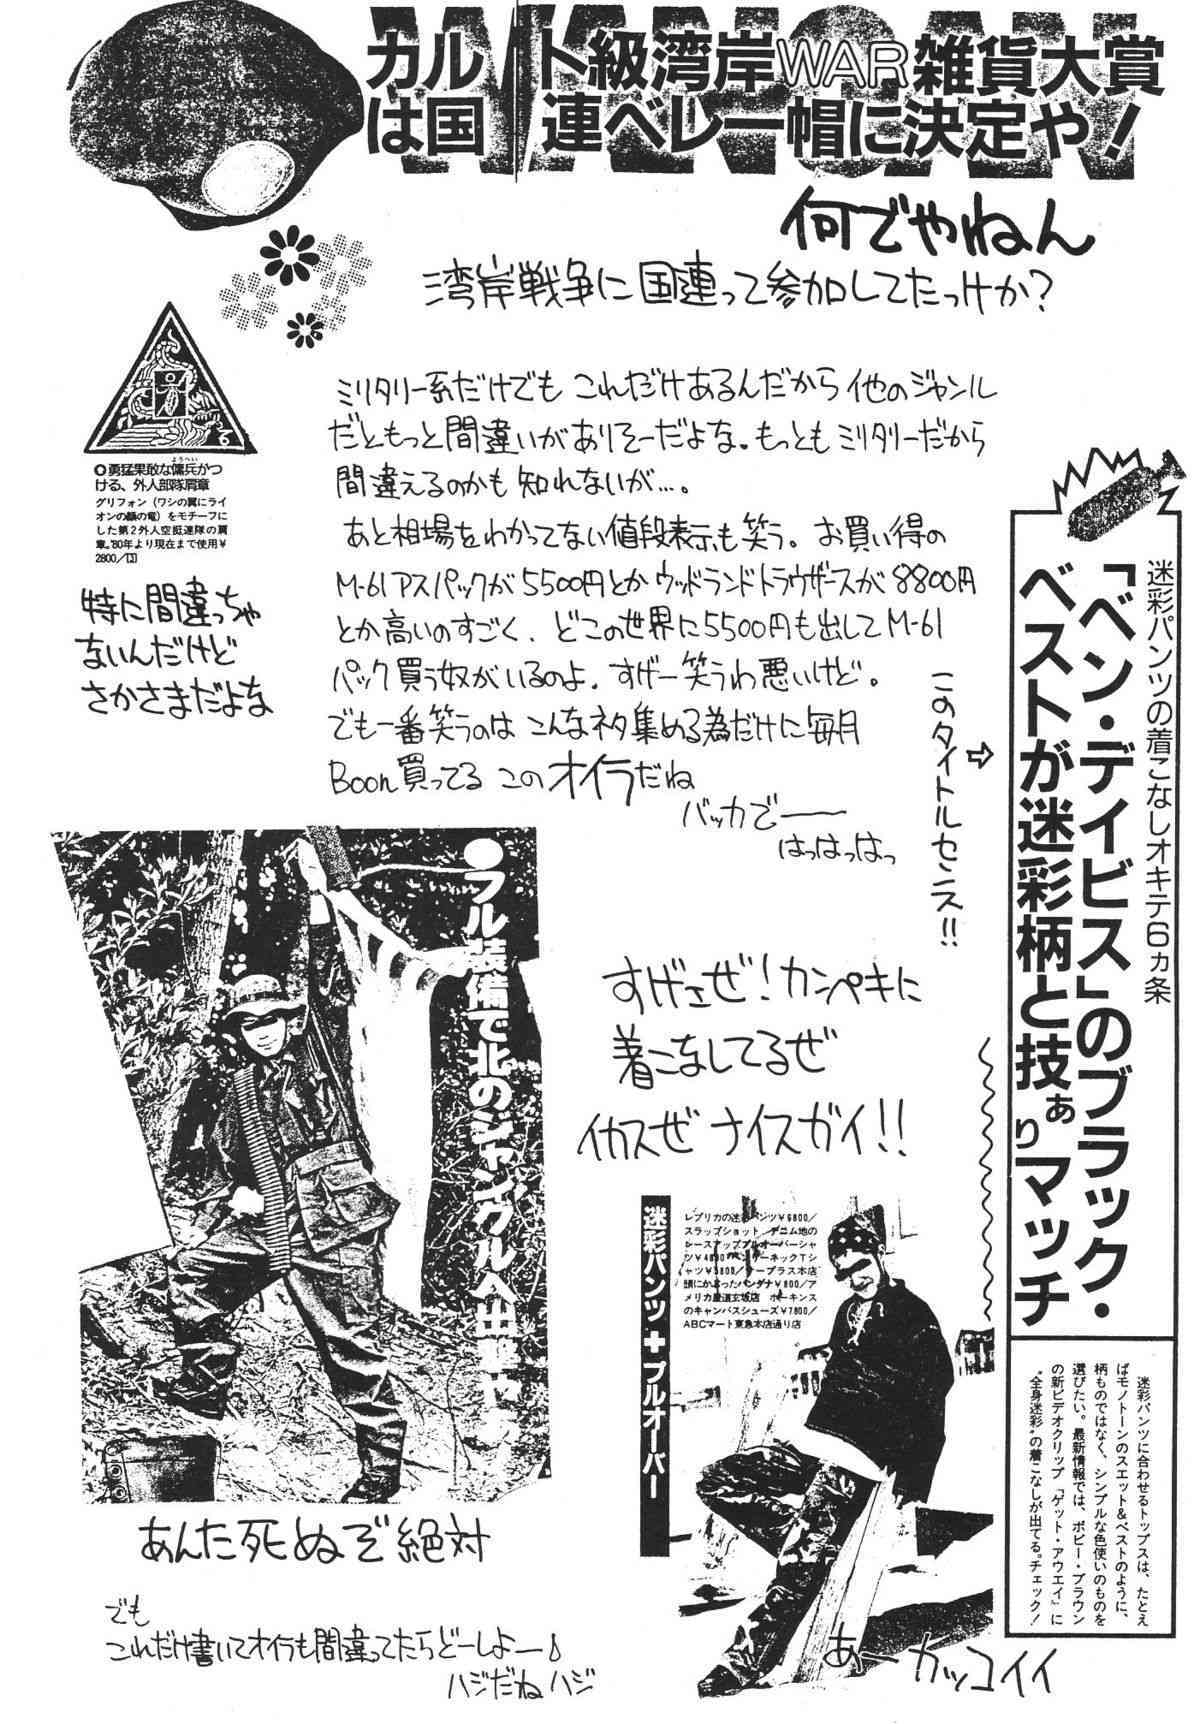 WANGAN
カルト級湾岸WAR雑貨大賞
は国連ベレー帽に決定や!
何でやねん
湾岸戦争に国連って参加してたっけか?
ミリタリー系だけでも これだけあるんだから 他のジャンル
だともっと間違いがありそーだよな。もっともミリタリーだから
間違えるのかも知れないが…。
あと相場をわかってない値段表示も笑う。お買い得の
M-61アスパックが5500円とかウッドランドトラウザースが8800円
とか高いのすごく、どこの世界に5500円も出してM-61
パック買う奴がいるのよ。すげー笑うわ悪いけど。
でも一番笑うのは こんなネタ集める為だけに毎月
Boon買ってる このオイラだね
バッカでー
はっはっはっ
○勇猛果敢な傭兵がつ
ようへい
ける、外人部隊肩章
グリフォン(ワシの翼にライ
オンの顔の竜)をモチーフに
した第2外人空挺連隊の肩
章。'80年より現在まで使用¥
2800/[J]
特に間違っちゃ
ないんだけど
さかさまだよな
迷彩パンツの着こなしオキテ6ヵ条
「ベン・デイビス」のブラック・
ベストが迷彩柄と技ぁりマッチ
このタイトルセンス!!
⇨
迷彩パンツに合わせるトップスは、たとえ
ばモノトーンのスエット&ベストのように、
柄ものではなく、シンプルな色使いのものを
選びたい。最新情報では、ボビー・ブラウン
の新ビデオクリップ「ゲット・アウエイ」に
"全身迷彩"の着こなしが出てる。チェック!
●フル装備で北のジャングルへ
すげェぜ!カンペキに
着こなしてるぜ
イカスぜ ナイスガイ!!
迷彩パンツ+プルオーバー
レプリカの迷彩パンツ¥6800/
スラップショット デニム地の
レースアッププルオーバーシャ
ツ¥4800 ヘンリーネックTシ
ャツ¥3800/ラープラス本店
頭にかぶったバンダナ¥800/ア
メリカ屋道玄坂店 ホーキンス
のキャンバスシューズ¥7800/
ABCマート東急本店通り店
あーカッコイイ
あんた死ぬぞ絶対
でも
これだけ書いてオイラも間違ってたらどーしよー♪
ハジだねハジ